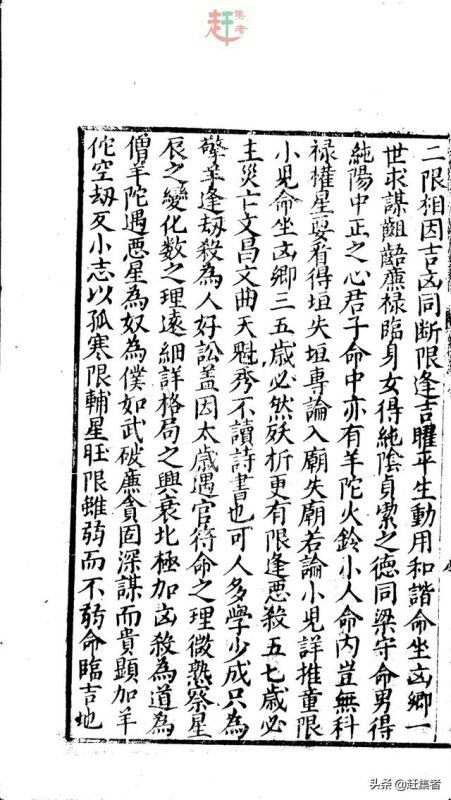 赶集者
二限相因吉凶同断限逢吉曜平生動用和諧命坐凶鄉一
世求謀齟齬廉禄臨身女得純陰貞潔之德同梁守命男得
純陽中正之心君子命中亦有羊陀火鈴小人命內豈無科
禄權星要看得垣失垣專論入廟失廟若論小兒詳推童限
小児命坐凶鄉三五歲必然殀折更有限逢惡殺五七歲必
主災亡文昌文曲天魁秀不讀詩書也可人多學少成只為
擎羊逢劫殺為人好訟蓋因太歲遇官符命之理微熟察星
辰之變化數之理遠細詳格局之興衰北極加凶殺為道為
僧羊陀遇惡星為奴為僕如武破廉貪固深謀而貴顯加羊
佗空劫反小志以孤寒限輔星旺限雖弱而不弱命臨吉地
头条@赶集者